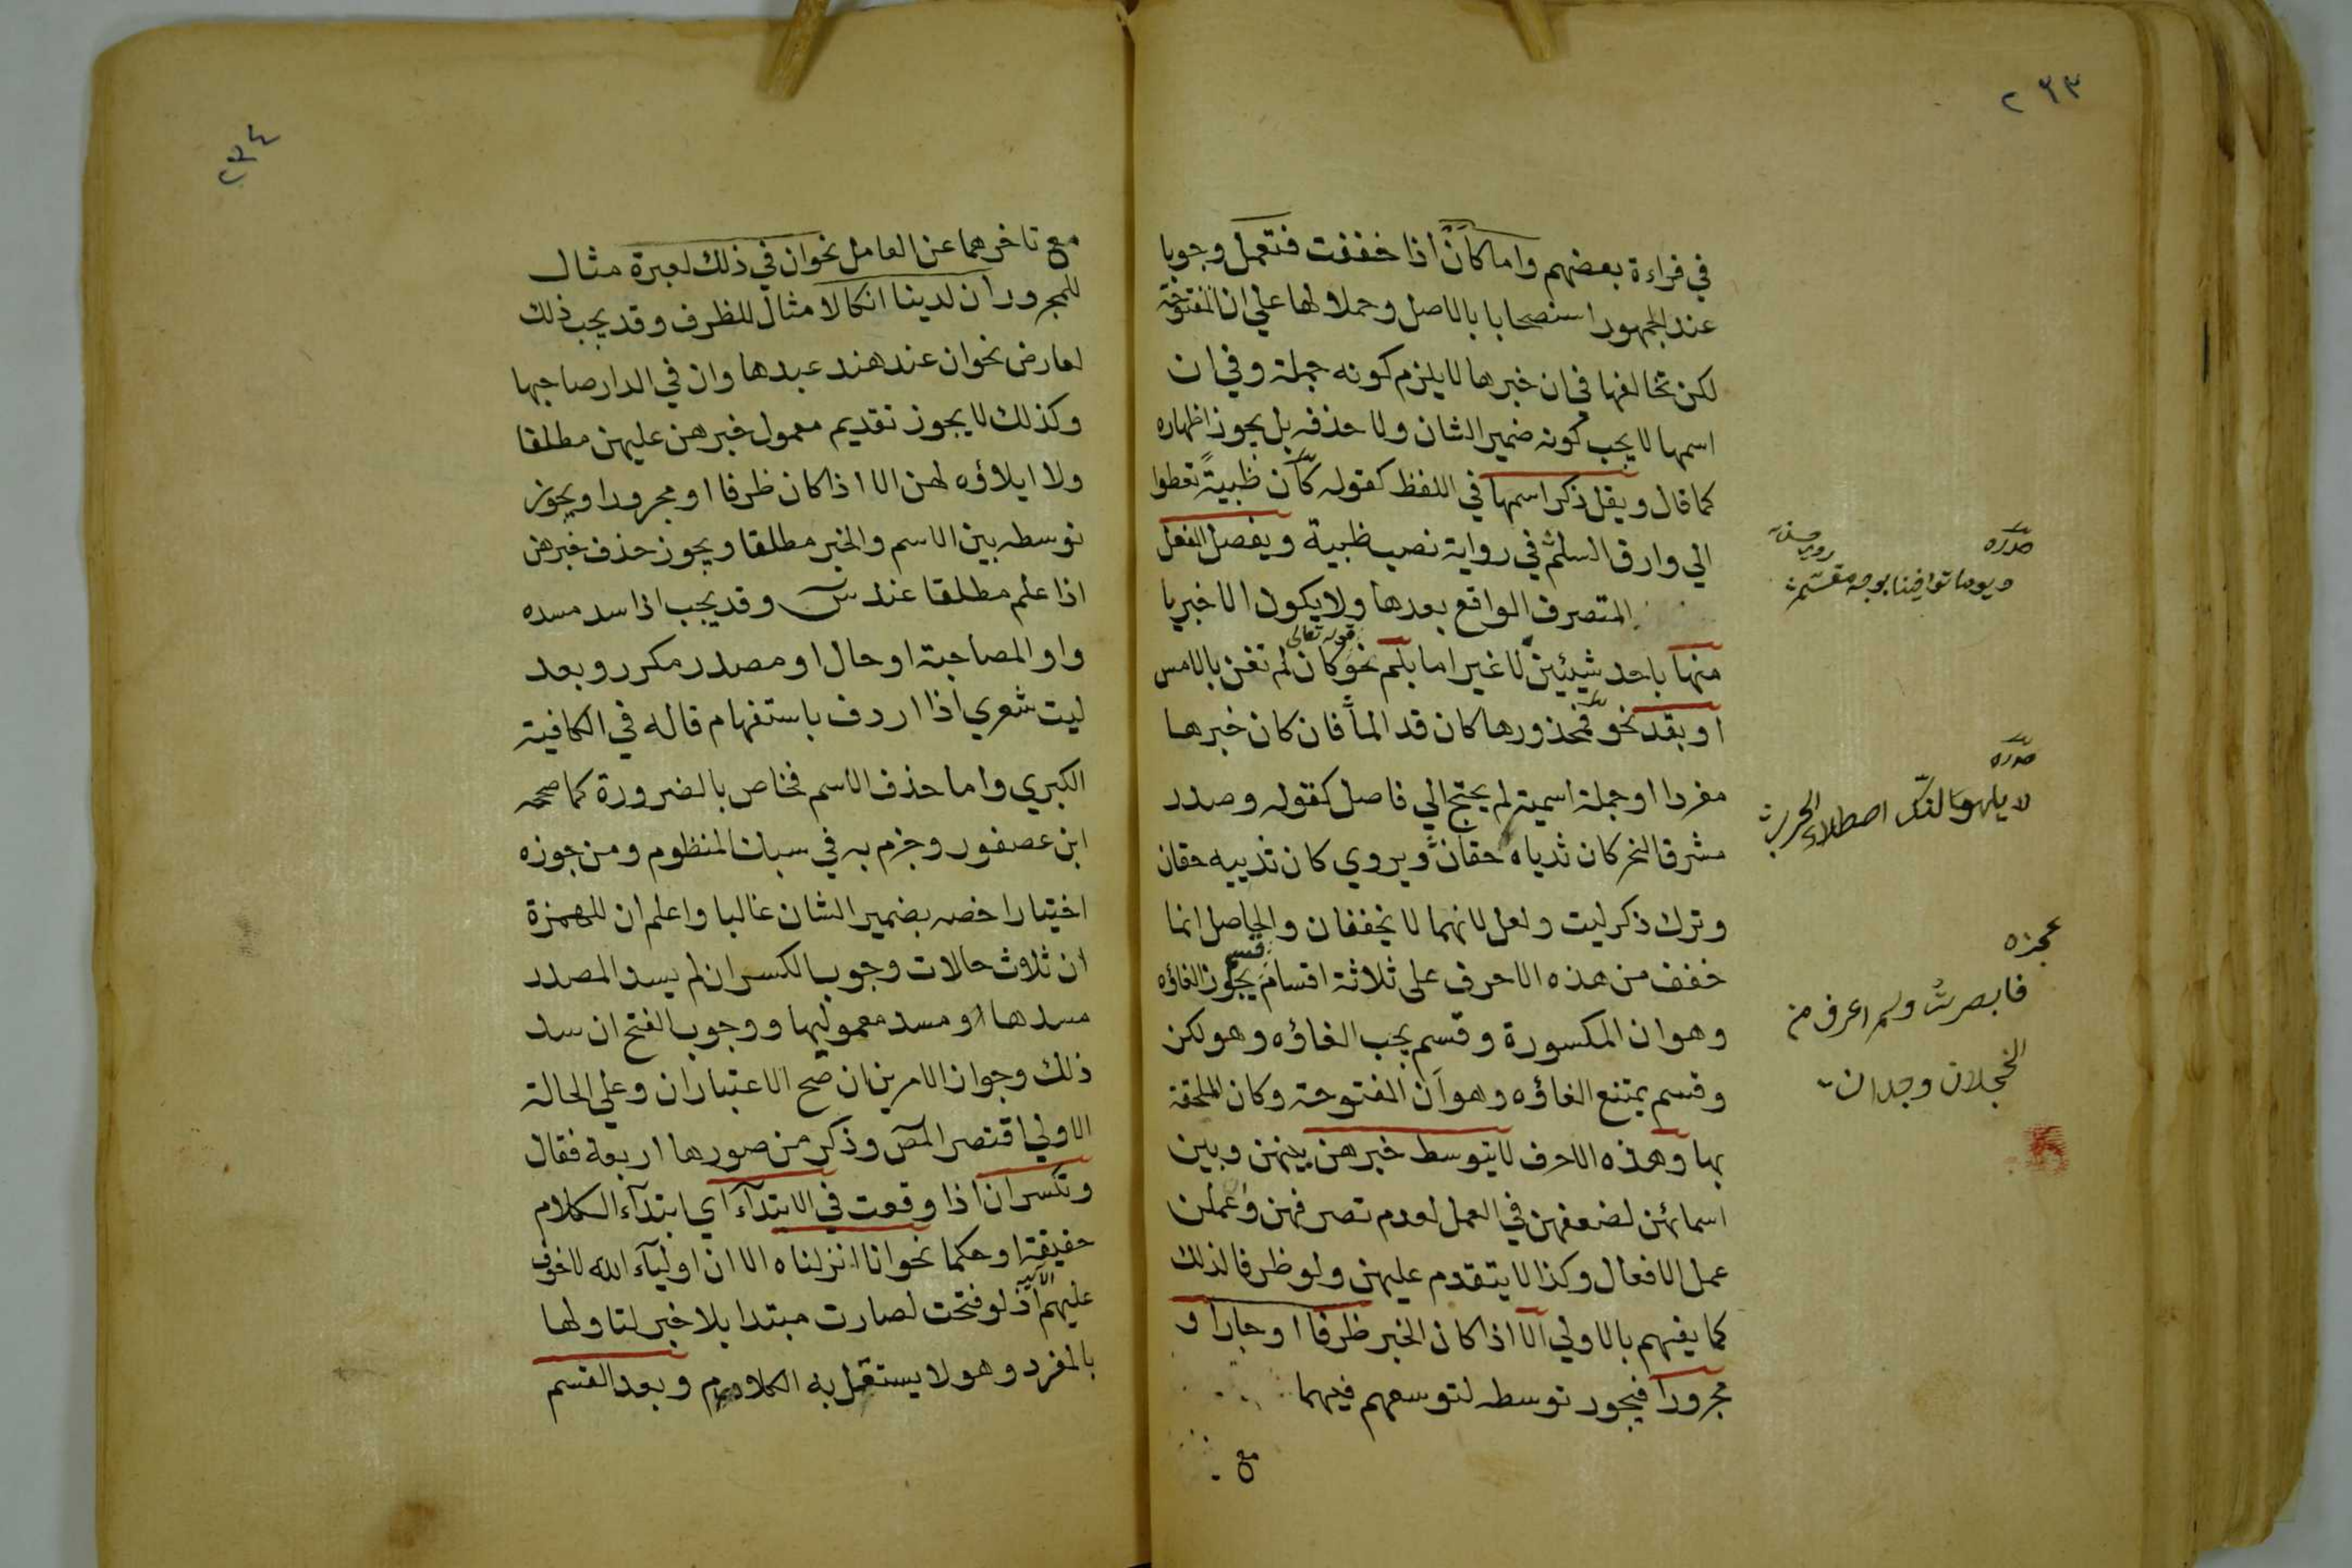 ٢٣٣
في قراءة بعضهم واما كأنْ اذا خففت فتعمل وجوبا
عند الجمهور استصحابا بالاصل وحملا لها علي ان المفتوحة
لكن تخالفها في ان خبرها لا يلزم كونه جملة وفي ان
اسمها لا يجب كونه ضمير الشان ولا حذفه بل يجوز اظهاره
كما قال ويقل ذكر اسمها في اللفظ كقوله كأن ظبيةً تعطوا
الي وارق السلم في رواية نصب ظبية ويفصل الفعل
المتصرف الواقع بعدها ولا يكون الا خبريا
منها باحد شيئين لا غير اما بلم نحو قوله تعالى كان لم تغن بالامس
او بقد نحو فمحذورها كان قد المّا فان كان خبرها
مفردا او جملة اسمية لم يحتج الي فاصل كقوله وصدر
مشرق النحر كان ثدياه حقان ويروي كان ثدييه حقان
وترك ذكر ليت ولعل لانهما لا يخففان والحاصل انما
خفف من هذه الاحرف على ثلاثة اقسام قسم يجوز الغاؤه
وهو ان المكسورة وقسم يجب الغاؤه وهو لكن
وقسم يمتنع الغاؤه وهو أن المفتوحة وكان الملحقة
بها وهذه الاحرف لا يتوسط خبرهن بينهن وبين
اسمائهن لضعفهن في العمل لعدم تصرفهن وعملن
عمل الافعال وكذا لا يتقدم عليهن ولو ظرفا لذلك
كما يفهم بالاولي الا اذا كان الخبر ظرفا او جارا و
مجرورا فيجوز توسطه لتوسعهم فيهما
مع
صدره
ويوما توافينا بوجه مقسّم
صدره
لا يلهونّك اصطلاء الحرب
عجزه
فابصرتُ ولم اعرف من
الخجلان وجدان
٢٣٤
مع تاخرهما عن العامل نحو ان في ذلك لعبرة مثال
للمجرور ان لدينا انكالا مثال للظرف وقد يجب ذلك
لعارض نحو ان عند هند عبدها وان في الدار صاحبها
وكذلك لا يجوز تقديم معمول خبرهن عليهن مطلقا
ولا ايلاؤه لهن الا اذا كان ظرفا او مجرورا ويجوز
توسطه بين الاسم والخبر مطلقا ويجوز حذف خبرهن
اذا علم مطلقا عند س وقد يجب اذا سد مسده
واو المصاحبة او حال او مصدر مكرر وبعد
ليت شعري اذا اردف باستفهام قاله في الكافية
الكبري واما حذف الاسم فخاص بالضرورة كما صححه
ابن عصفور وجزم به في سبك المنظوم ومن جوزه
اختيارا خصه بضمير الشان غالبا واعلم ان للهمزة
ان ثلاث حالات وجوب الكسر ان لم يسد المصدر
مسدها او مسد معموليها ووجوب الفتح ان سد
ذلك وجواز الامرين ان صح الاعتباران وعلي الحالة
الاولي اقتصر المص وذكر من صورها اربعة فقال
وتكسر ان اذا وقعت في الابتدآء اي ابتدآء الكلام
حقيقة او حكما نحو انا انزلناه الا ان اوليآء الله لا خوف
عليهم الآية اذ لو فتحت لصارت مبتدا بلا خبر لتاولها
بالمفرد وهو لا يستقل به الكلام وبعد القسم